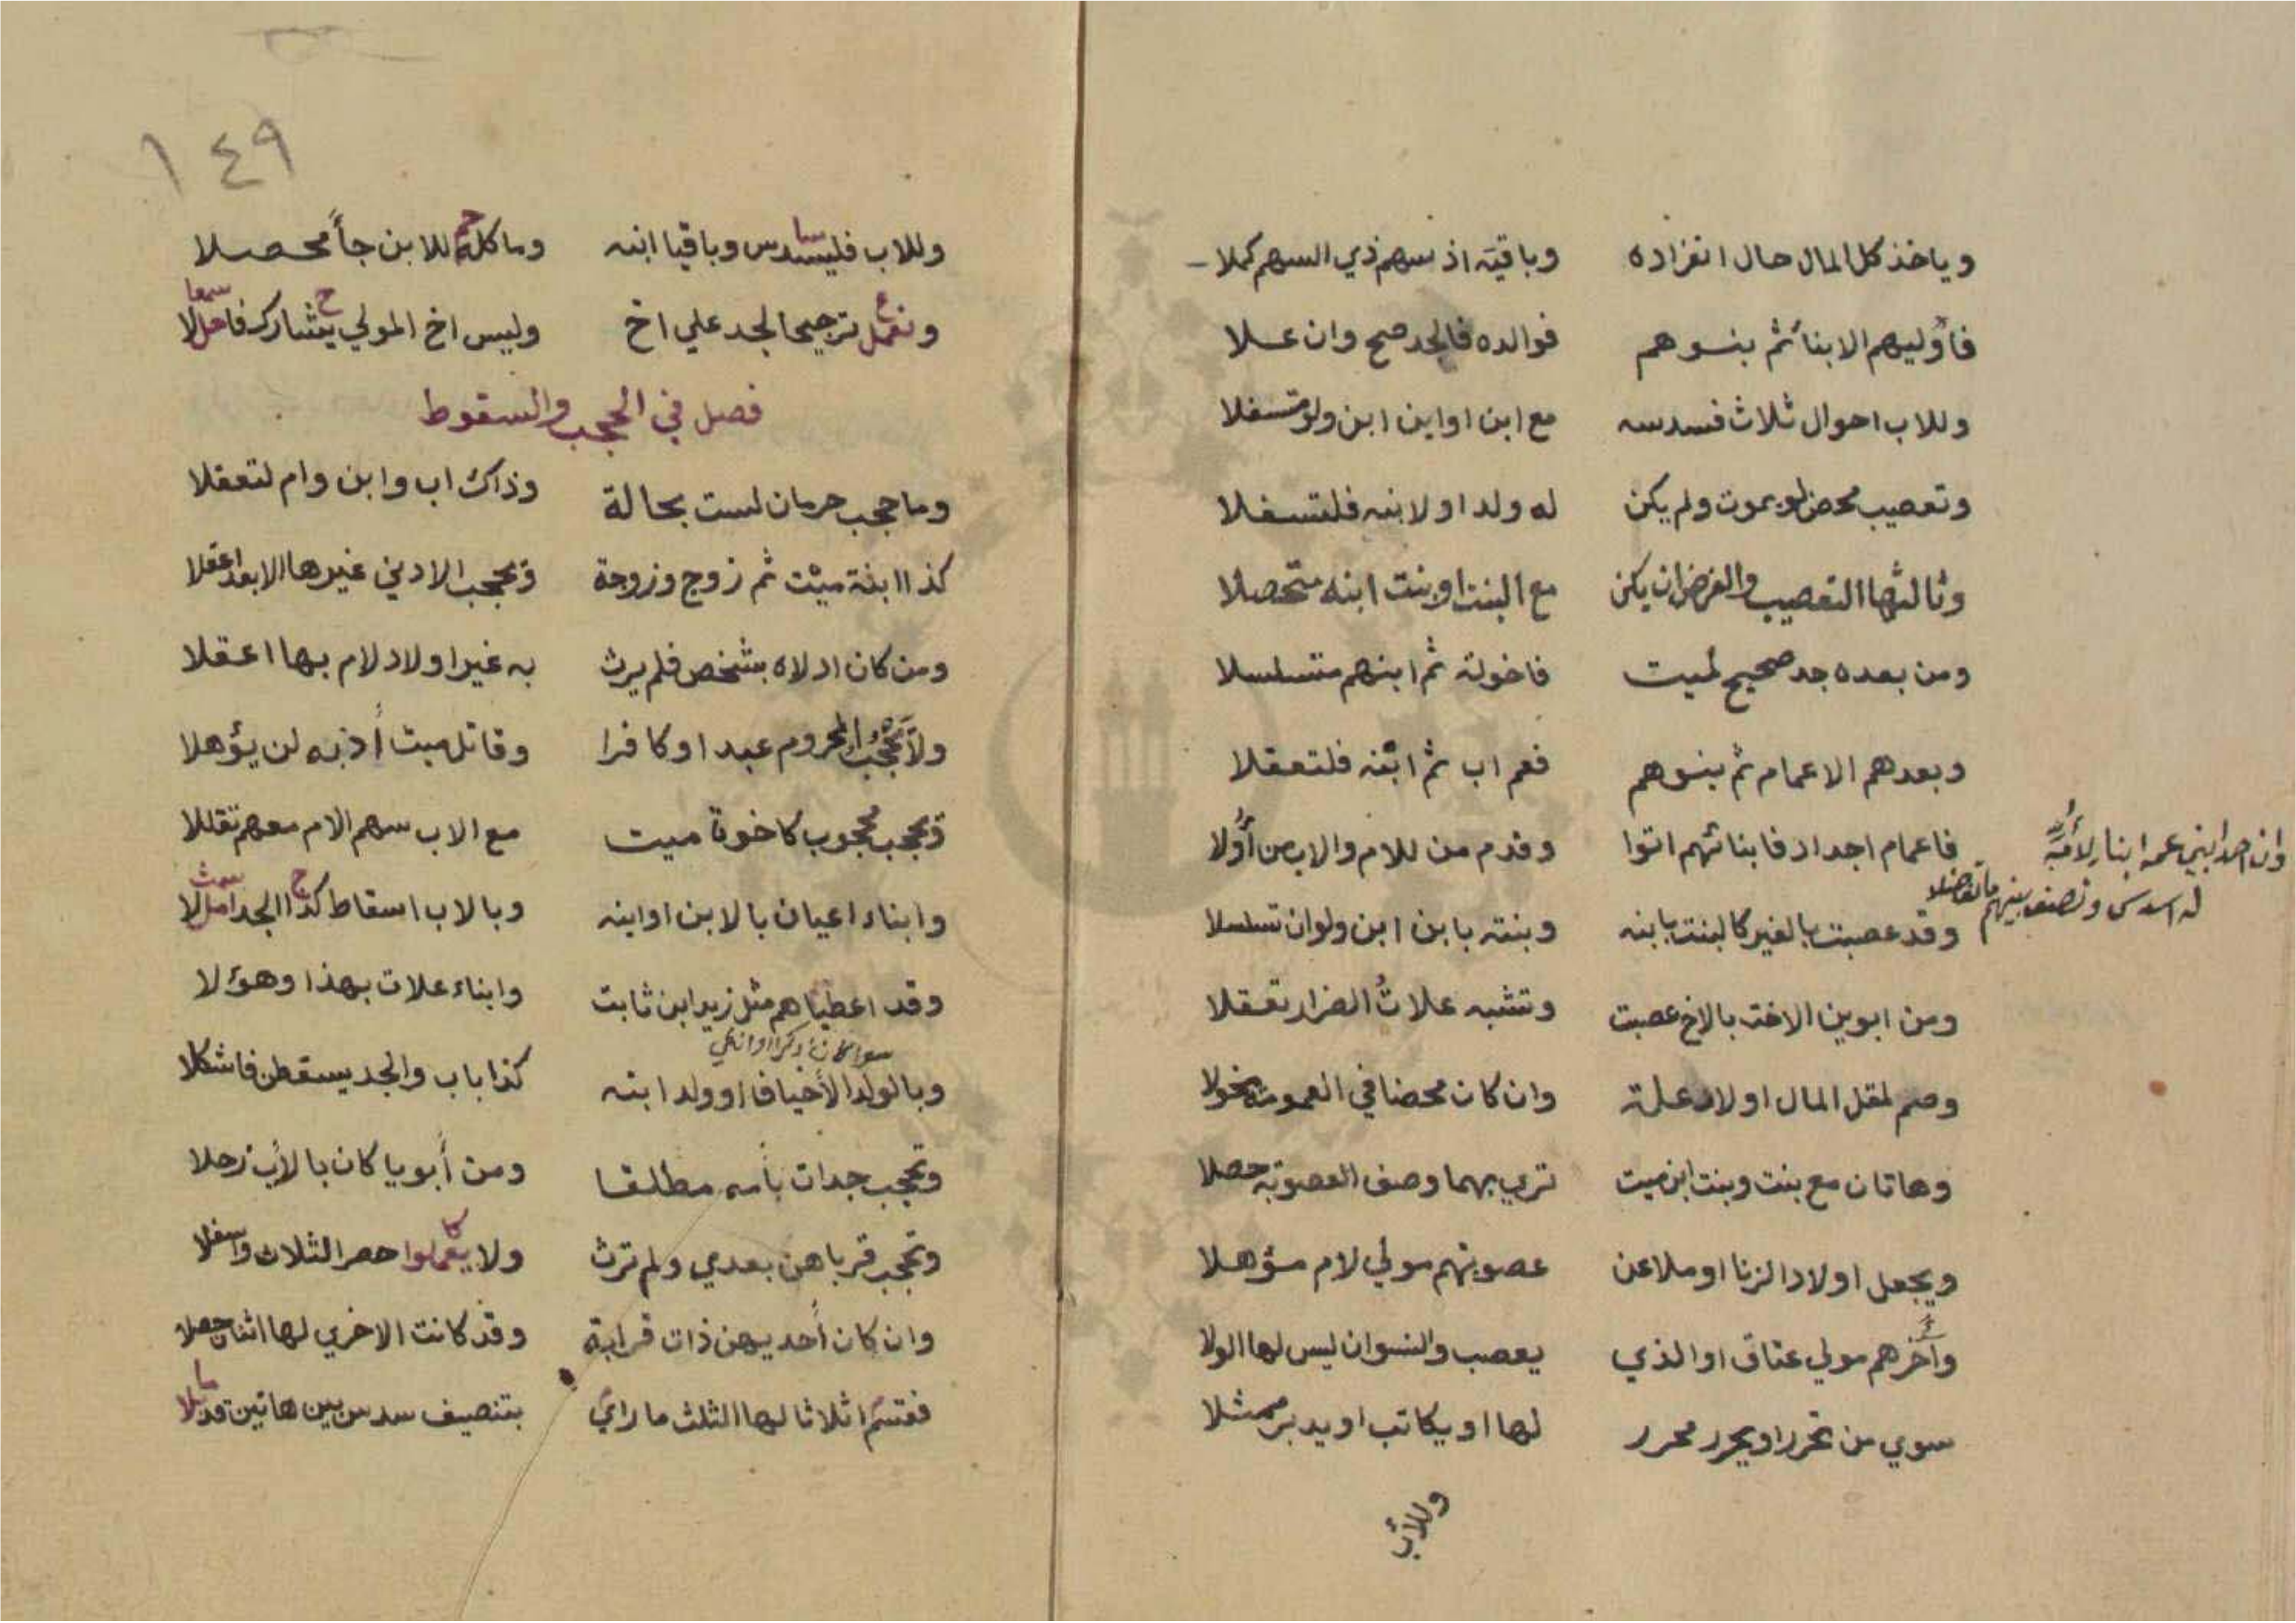 وياخذ كل المال حال انفراده وباقيه اذ سهم ذي السهم كملا
فاوليهم الابنا ثم بنوهم فوالده فالجد صح وان علا
وللاب احوال ثلاث فسدسه مع ابن او ابن ابن ولو متسفلا
وتعصيب محض لو يموت ولم يكن له ولد او لابنه فلتسفلا
وثالثها التعصيب والفرض ان يكن مع البنت او بنت ابنه متحصلا
ومن بعده جد صحيح لميت فاخوته ثم ابنهم متسلسلا
وبعدهم الاعمام ثم بنوهم فعم اب ثم ابنه فلتعقلا
فاعمام اجداد فابنائهم اتوا وقدم من للام والاب من أولا
وان احد ابني عمه ابنا لأمه
له اسدس ونصف بينهم ما تفاضلا
وقد عصبت بالغير كالبنت بابنه وبنته بابن ابن ولو ان تسلسلا
ومن ابوين الاخت بالاخ عصبت وتشبه علات الضرار تعقلا
وصم لمقل المال اولاد علة وان كان محضا في العمومة يخولا
وهاتان مع بنت وبنت ابن ميت تري بهما وصف العصوبة حصلا
ويجعل اولاد الزنا او ملاعن عصوبتهم مولي لام مؤهلا
وآخرهم مولي عتاق او الذي يعصب والنسوان ليس لها الولا
سوي من تحرر او يحرر محرر لها او يكاتب او يدبر ممثلا
وللأب
١٤٩
وللاب فليسدس وباقيا ابنه وما كله للابن جأ محصلا
ونعمل ترجيحا لجد علي اخ وليس اخ المولي يشارك فاعملا
فصل في الحجب والسقوط
وما حجب حرمان لست بحالة وذاك اب وابن وام لتعقلا
كذا ابنة ميت ثم زوج وزوجة وتحجب الادني غيرها الابعد اعقلا
ومن كان ادلاه بشخص فلم يرث به غير اولاد لام بها اعقلا
ولا تحجب المحروم عبدا وكافرا وقاتل ميت أذ به لن يؤهلا
وتحجب محجوب كاخوة ميت مع الاب سهم الام معهم تقللا
وابناء اعيان بالابن او ابنه وبالاب اسقاط كذا الجد
وقد اعطياهم مثل زيد ابن ثابت وابناء علات بهذا وهؤلا
سوا كان ذكرا او انثي
وبالولد الأخيافا او ولد ابنه كذا باب والجد يسقطن فاشكلا
وتحجب جدات بأمه مطلقا ومن أبويا كان بالأب زحلا
وتحجب قرباهن بعدي ولم ترث ولا يعملوا حصر الثلاث واسفلا
وان كان أحديهن ذات قرابة وقد كانت الاخري لها اثنان حصلا
فقسم اثلاثا لها الثلث ما راي بتنصيف سدس بين هاتين